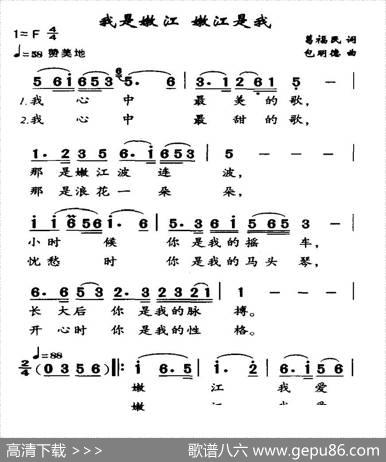 我是嫩江 嫩江是我
1=F 4/4
葛福民 词
♩=58 赞美地
包明德 曲
5 6i 653 5. 6 3. 1261 5 - - -
1.我 心中 最 美的 歌,
2.我 心中 最 甜的 歌,
1. 235 6. i653 5 - - -
那 是嫩江 波 连 波,
那 是浪花 一 朵 朵,
i i6561. 6 5. 36i535 3 - -
小 时 候 你 是我的 摇 车,
忧 愁 时 你 是我的 马头 琴,
6. 653 2. 32321 1 - - -
长 大后 你 是我的 脉 搏。
开 心时 你 是我的 性 格。
♩=88
2/4 (0356) |: i 6.5 i. 2 6 i
嫩 江 我 爱
嫩 江
高清下载 >>>
歌谱八六 www.gepu86.com